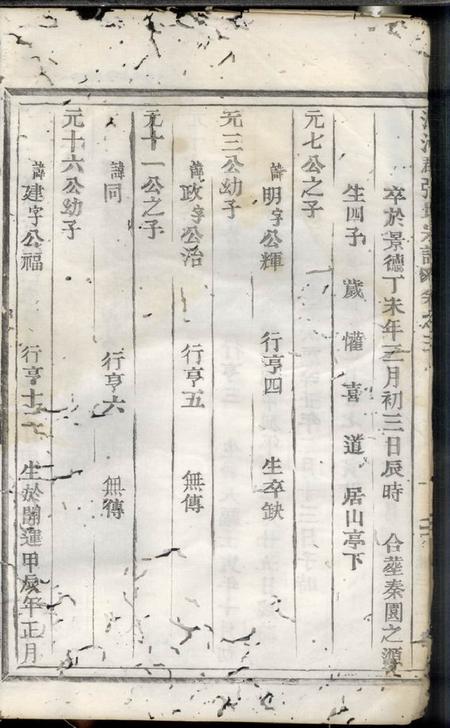 清河郡張氏宗譜 卷之三
卒於景德丁未年三月初三日辰時 合塟秦園之源
生四子 歲 懽 喜 道 居山亭下
元七公之子
諱明字公輝 行亨四 生卒缺
元三公幼子
諱政字公治 行亨五 無傳
元十一公之子
諱同 行亨六 無傳
元十六公幼子
諱建字公福 行亨十二 生於開運甲辰年正月